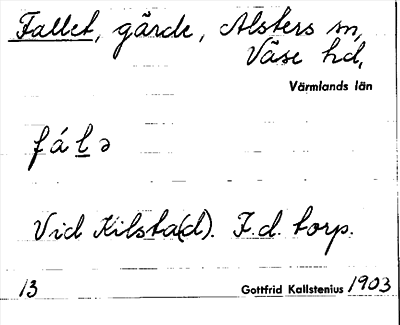 Fallet, gärde, Alsters sn,
Väse hd,
Värmlands län
fálə
Vid Kilsta(d). F.d. torp.
13 Gottfrid Kallstenius 1903